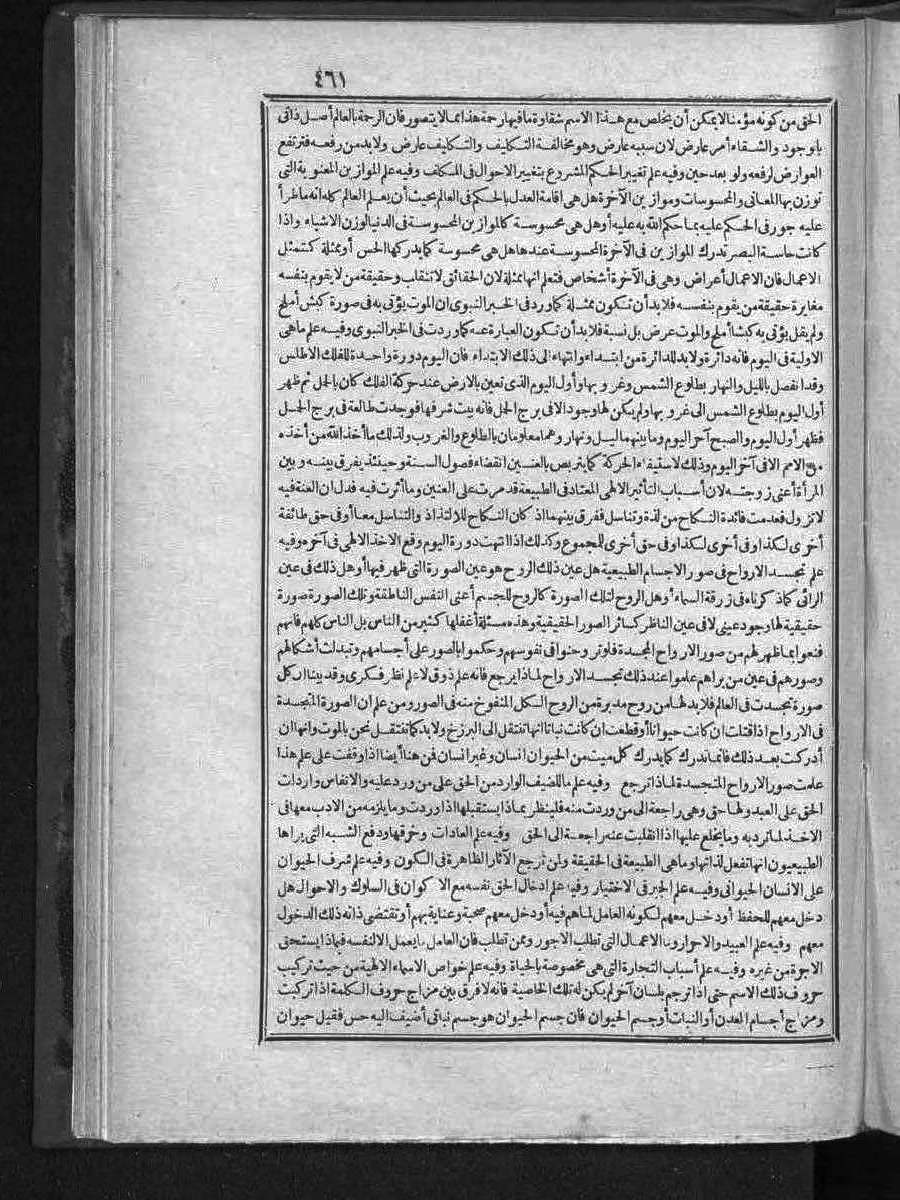 ٤٦١
الحق من كونه مؤمنا لا يمكن أن يخلص مع هذا الاسم شقاوة ما فيها رحمة هذا مما لا يتصور فان الرحمة بالعالم أصل ذاتى
بالوجود والشقاء أمر عارض لان سببه عارض وهو مخالفة التكليف والتكليف عارض ولابد من رفعه فترتفع
العوارض لرفعه ولو بعد حين وفيه علم تغيير الحكم المشروع بتغيير الاحوال فى المكلف وفيه علم الموازين المعنوية التى
توزن بها المعانى والمحسوسات وموازين الآخرة هل هى اقامة العدل بالحكم فى العالم بحيث أن يعلم العالم كله انه ما طرأ
عليه جور فى الحكم عليه بما حكم الله به عليه أو هل هى محسوسة كالموازين المحسوسة فى الدنيا لوزن الاشياء واذا
كانت حاسة البصر تدرك الموازين فى الآخرة المحسوسة عندها هل هى محسوسة كما يدركها الحس أو ممثلة كتمثل
الاعمال فان الاعمال أعراض وهى فى الآخرة أشخاص فتعلم انها ممثلة لان الحقائق لا تنقلب وحقيقة من لا يقوم بنفسه
مغايرة حقيقة من يقوم بنفسه فلابد أن تكون ممثلة كما ورد فى الخبر النبوى ان الموت يؤتى به فى صورة كبش أملح
ولم يقل يؤتى به كبشا أملح والموت عرض بل نسبة فلابد أن تكون العبارة عنه كما وردت فى الخبر النبوى وفيه علم ما هى
الاولية فى اليوم فانه دائرة ولابد للدائرة من ابتداء وانتهاء الى ذلك الابتداء فان اليوم دورة واحدة للفلك الاطلس
وقد انفصل بالليل والنهار بطلوع الشمس وغروبها وأول اليوم الذى تعين بالارض عند حركة الفلك كان بالحمل ثم ظهر
أول اليوم بطلوع الشمس الى غروبها ولم يكن لها وجود الا فى برج الحمل فانه بيت شرفها فوجدت طالعة فى برج الحمل
فظهر أول اليوم والصبح آخر اليوم وما بينهما ليل ونهار وهما معلومان بالطلوع والغروب ولذلك ما أخذ الله من أخذه
من الامم الا فى آخر اليوم وذلك لاستيفاء الحركة كما يتربص بالعنين انقضاء فصول السنة وحينئذ يفرق بينه وبين
المرأة أعنى زوجته لان أسباب التأثير الالهى المعتاد فى الطبيعة قد مرت على العنين وما أثرت فيه فدل ان العنة فيه
لا تزول فعدمت فائدة النكاح من لذة وتناسل ففرق بينهما اذ كان النكاح للالتذاذ والتناسل معا أو فى حق طائفة
أخرى لكذا وفى أخرى لكذا وفى حق أخرى للمجموع وكذلك اذا انتهت دورة اليوم وقع الاخذ الالهى فى آخره وفيه
علم تجسد الارواح فى صور الاجسام الطبيعية هل عين ذلك الروح هو عين الصورة التى ظهر فيها أو هل ذلك فى عين
الرائى كما ذكرناه فى زرقة السماء أو هل الروح لتلك الصورة كالروح للجسم أعنى النفس الناطقة وتلك الصورة صورة
حقيقية لها وجود عينى لا فى عين الناظر كسائر الصور الحقيقية وهذه مسئلة أغفلها كثير من الناس بل الناس كلهم فانهم
قنعوا بما ظهر لهم من صور الارواح المجسدة فلو تروحنوا فى نفوسهم وحكموا بالصور على أجسامهم وتبدلت أشكالهم
وصورهم فى عين من يراهم علموا عند ذلك تجسد الارواح لماذا يرجع فانه علم ذوق لا علم نظر فكرى وقد بينا ان كل
صورة تجسدت فى العالم فلابد لها من روح مدبرة من الروح الكل المنفوخ منه فى الصور ومن علم ان الصورة المتجسدة
فى الارواح اذا قتلت ان كانت حيوانا أو قطعت ان كانت نباتا انها تنتقل الى البرزخ ولابد كما تنتقل نحن بالموت وانها ان
أدركت بعد ذلك فانما تدرك كما يدرك كل ميت من الحيوان انسان وغير انسان فمن هنا أيضا اذا وقفت على علم هذا
علمت صور الارواح المتجسدة لماذا ترجع وفيه علم ما للضيف الوارد من الحق على من ورد عليه والانفاس واردات
الحق على العبد ولها حق وهى راجعة الى من وردت منه فلينظر بماذا يستقبلها اذا وردت وما يلزمه من الادب معها فى
الاخذ لما ترد به وما يخلع عليها اذا انقلبت عنه راجعة الى الحق وفيه علم العادات وخرقها ودفع الشبه التى يراها
الطبيعيون انها تفعل لذاتها وما هى الطبيعة فى الحقيقة ولمن ترجع الآثار الظاهرة فى الكون وفيه علم شرف الحيوان
على الانسان الحيوانى وفيه علم الجبر فى الاختيار وفيه علم ادخال الحق نفسه مع الاكوان فى السلوك والاحوال هل
دخل معهم للحفظ أو دخل معهم لكونه العامل لما هم فيه أو دخل معهم صحبة وعناية بهم أو تقتضى ذاته ذلك الدخول
معهم وفيه علم العبيد والاجراء وما الاعمال التى تطلب الاجور وممن تطلب فان العامل ما يعمل الا لنفسه فبماذا يستحق
الاجرة من غيره وفيه علم أسباب التجارة التى هى مخصوصة بالحياة وفيه علم خواص الاسماء الالهية من حيث تركيب
حروف ذلك الاسم حتى اذا ترجم بلسان آخر لم يكن له تلك الخاصية فانه لا فرق بين مزاج حروف الكلمة اذا تركبت
ومزاج أجسام المعدن أو النبات أو جسم الحيوان فان جسم الحيوان هو جسم نباتى أضيف اليه حس فقيل حيوان